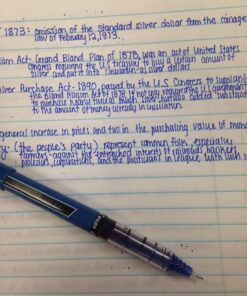 1873: omission of the standard silver dollar from the coinage
law of February 12, 1873.
Act- Grand Bland Plan of 1878, was an act of United States
Congress requiring the U.S. treasury to buy a certain amount of
silver and put it into circulation as silver dollars
Silver Purchase Act- 1890 passed by the U.S. Congress to supplant
the Bland Allison Act of 1878. It not only required the U.S. government
to purchase nearly twice as much silver, but also added substantially
to the amount of money already in circulation
general increase in prices and fall in the purchasing value of money
(the people's party) represent common folk, especially
farmers- against the entrenched interests of railroads, bankers,
corporations, and the politicians in league with such